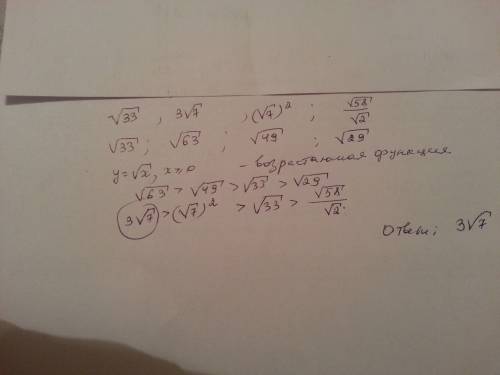 √33 , 3√7 , (√7)² ; √58/√2
√33 ; √63 ; √49 ; √29
y=√x, x≥0 - возрастающая функция
√63 > √49 > √33 > √29
3√7 > (√7)² > √33 > √58/√2.
Ответ: 3√7